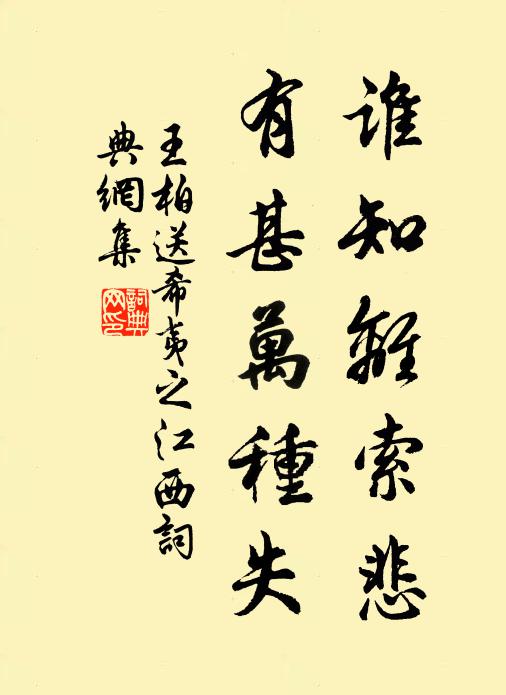 誰知離索悲
有甚萬種失
王柏送希夷之江西詞
典網集
詞典網印